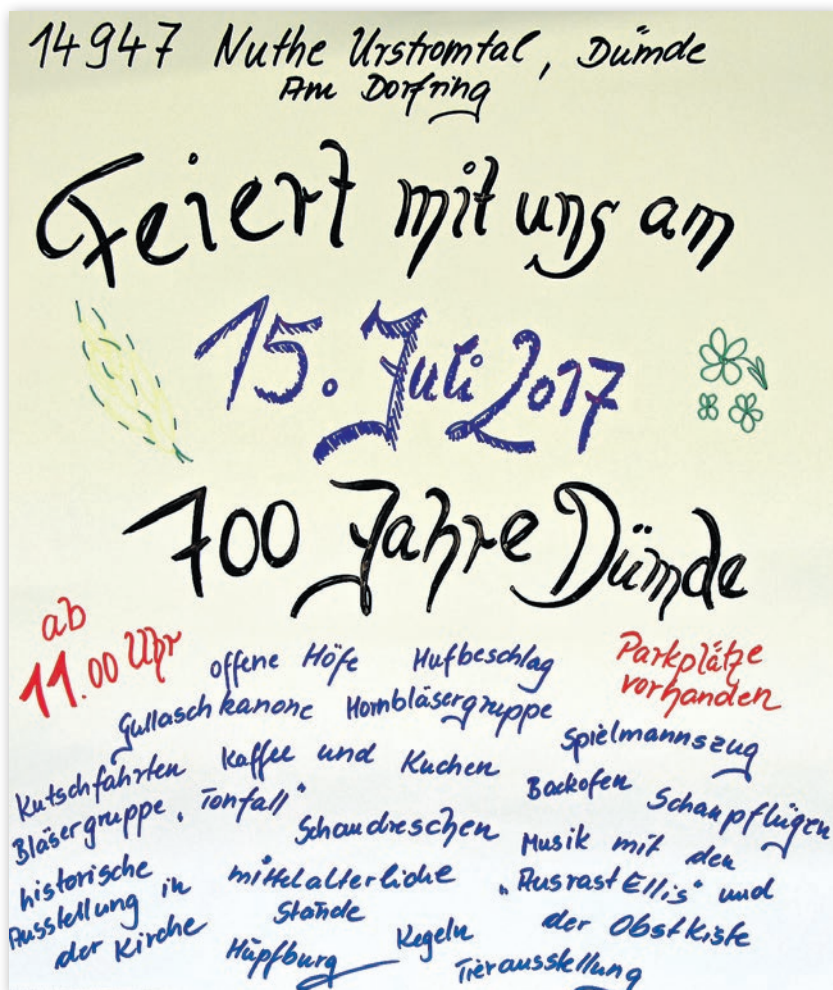 14947 Nuthe Urstromtal, Dümde
Am Dorfring
Feiert mit uns am
15. Juli 2017
700 Jahre Dümde
ab
11.00 Uhr
Parkplätze
vorhanden
offene Höfe
Hufbeschlag
Gullaschkanone
Hornbläsergruppe
Spielmannszug
Kutschfahrten
Kaffee und Kuchen
Backofen
Schaupflügen
Bläsergruppe "Tonfall"
Schaudreschen
Musik mit den
"AusrastEllis" und
der Obstkiste
historische
Ausstellung in
der Kirche
mittelalterliche
Stände
Hüpfburg
Kegeln
Tierausstellung